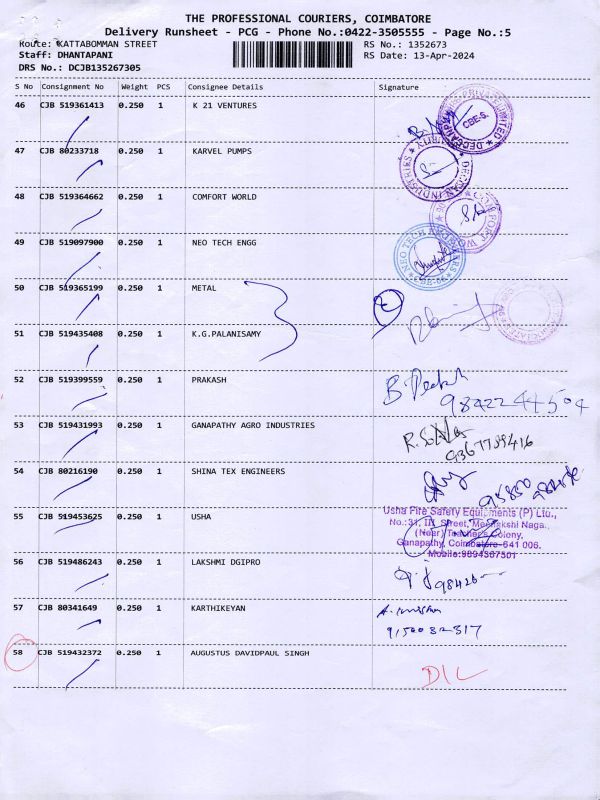 THE PROFESSIONAL COURIERS, COIMBATORE
Delivery Runsheet - PCG - Phone No.:0422-3505555 - Page No.:5
Route: KATTABOMMAN STREET RS No.: 1352673
Staff: DHANTAPANI RS Date: 13-Apr-2024
DRS No.: DCJB135267305
S No Consignment No Weight PCS Consignee Details Signature
46 CJB 519361413 0.250 1 K 21 VENTURES
CBE-S.
47 CJB 80233718 0.250 1 KARVEL PUMPS
48 CJB 519364662 0.250 1 COMFORT WORLD
49 CJB 519097900 0.250 1 NEO TECH ENGG
50 CJB 519365199 0.250 1 METAL
51 CJB 519435408 0.250 1 K.G.PALANISAMY
52 CJB 519399559 0.250 1 PRAKASH
9842244504
53 CJB 519431993 0.250 1 GANAPATHY AGRO INDUSTRIES
54 CJB 80216190 0.250 1 SHINA TEX ENGINEERS
55 CJB 519453625 0.250 1 USHA
Usha Fire Safety Equipments (P) Ltd.,
No.:31, III Street, Meenakshi Naga.,
(Near) Teacher's Colony,
Ganapathy, Coimbatore-641 006.
Mobile:9894367501
56 CJB 519486243 0.250 1 LAKSHMI DGIPRO
57 CJB 80341649 0.250 1 KARTHIKEYAN
9150032317
58 CJB 519432372 0.250 1 AUGUSTUS DAVIDPAUL SINGH
D/L